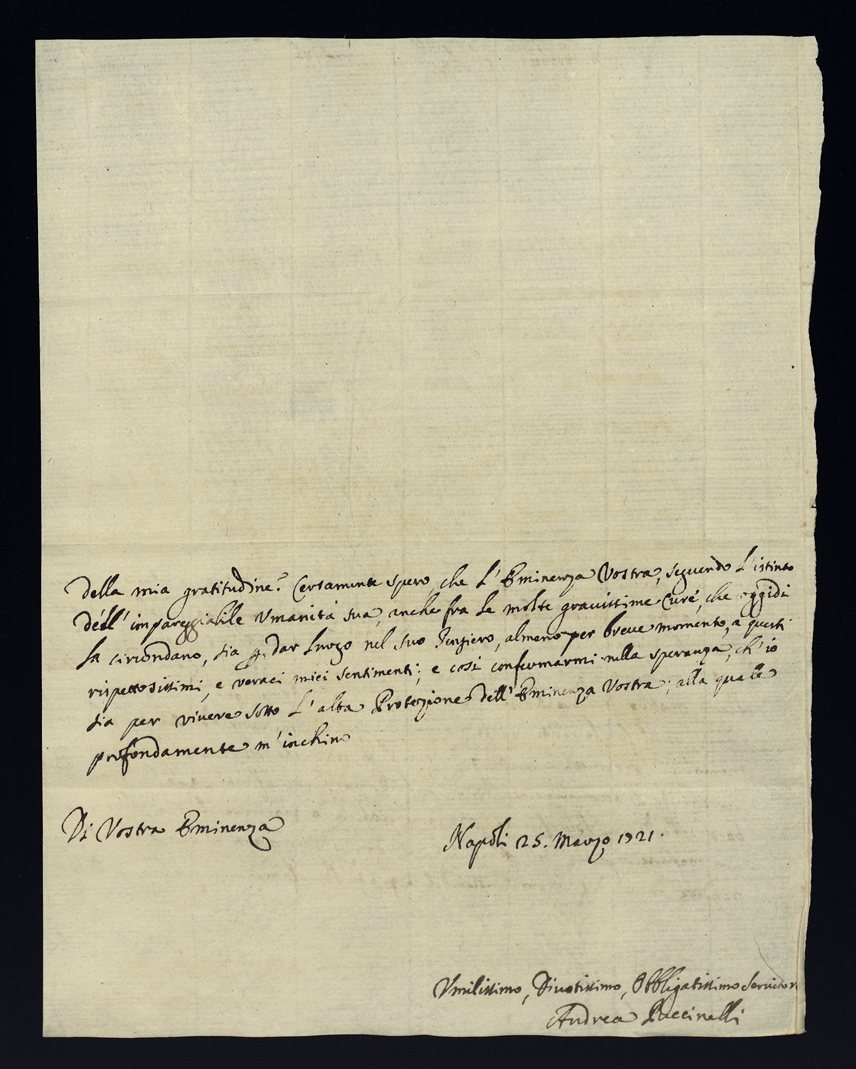 della mia gratitudine? Certamente spero, che L'Eminenza Vostra, seguendo L'istinto
dell'impareggiabile Umanità sua, anche fra Le molte gravissime Cure, che oggidì
La circondano, sia p. dar Luogo nel suo Pensiero, almeno per breve momento, a questi
rispettosissimi, e veraci miei sentimenti; e così confermarmi nella speranza, ch'io
sia per vivere sotto L'alta Protezione dell'Eminenza Vostra; alla quale
profondamente m'inchino
Di Vostra Eminenza
Napoli 25. Marzo 1721.
Umilissimo, Divotissimo, Obbligatissimo Servitore
Andrea Puccinelli